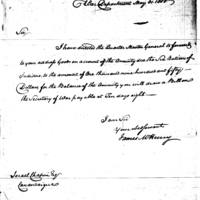 War Department May 20. 1800
Sir
I have directed the Quarter Master General to forward
to your address Goods on account of the Annuity due the Six Nations of
Indians to the amount of One thousand nine hundred and fifty
Dollars for the Balance of the Annuity you will draw a Bill on
the Secretary of War payable at Ten days sight —
I am Sir
Your Obd Servant
James McHenry
Israel Chapin Esqr
Canandaigua